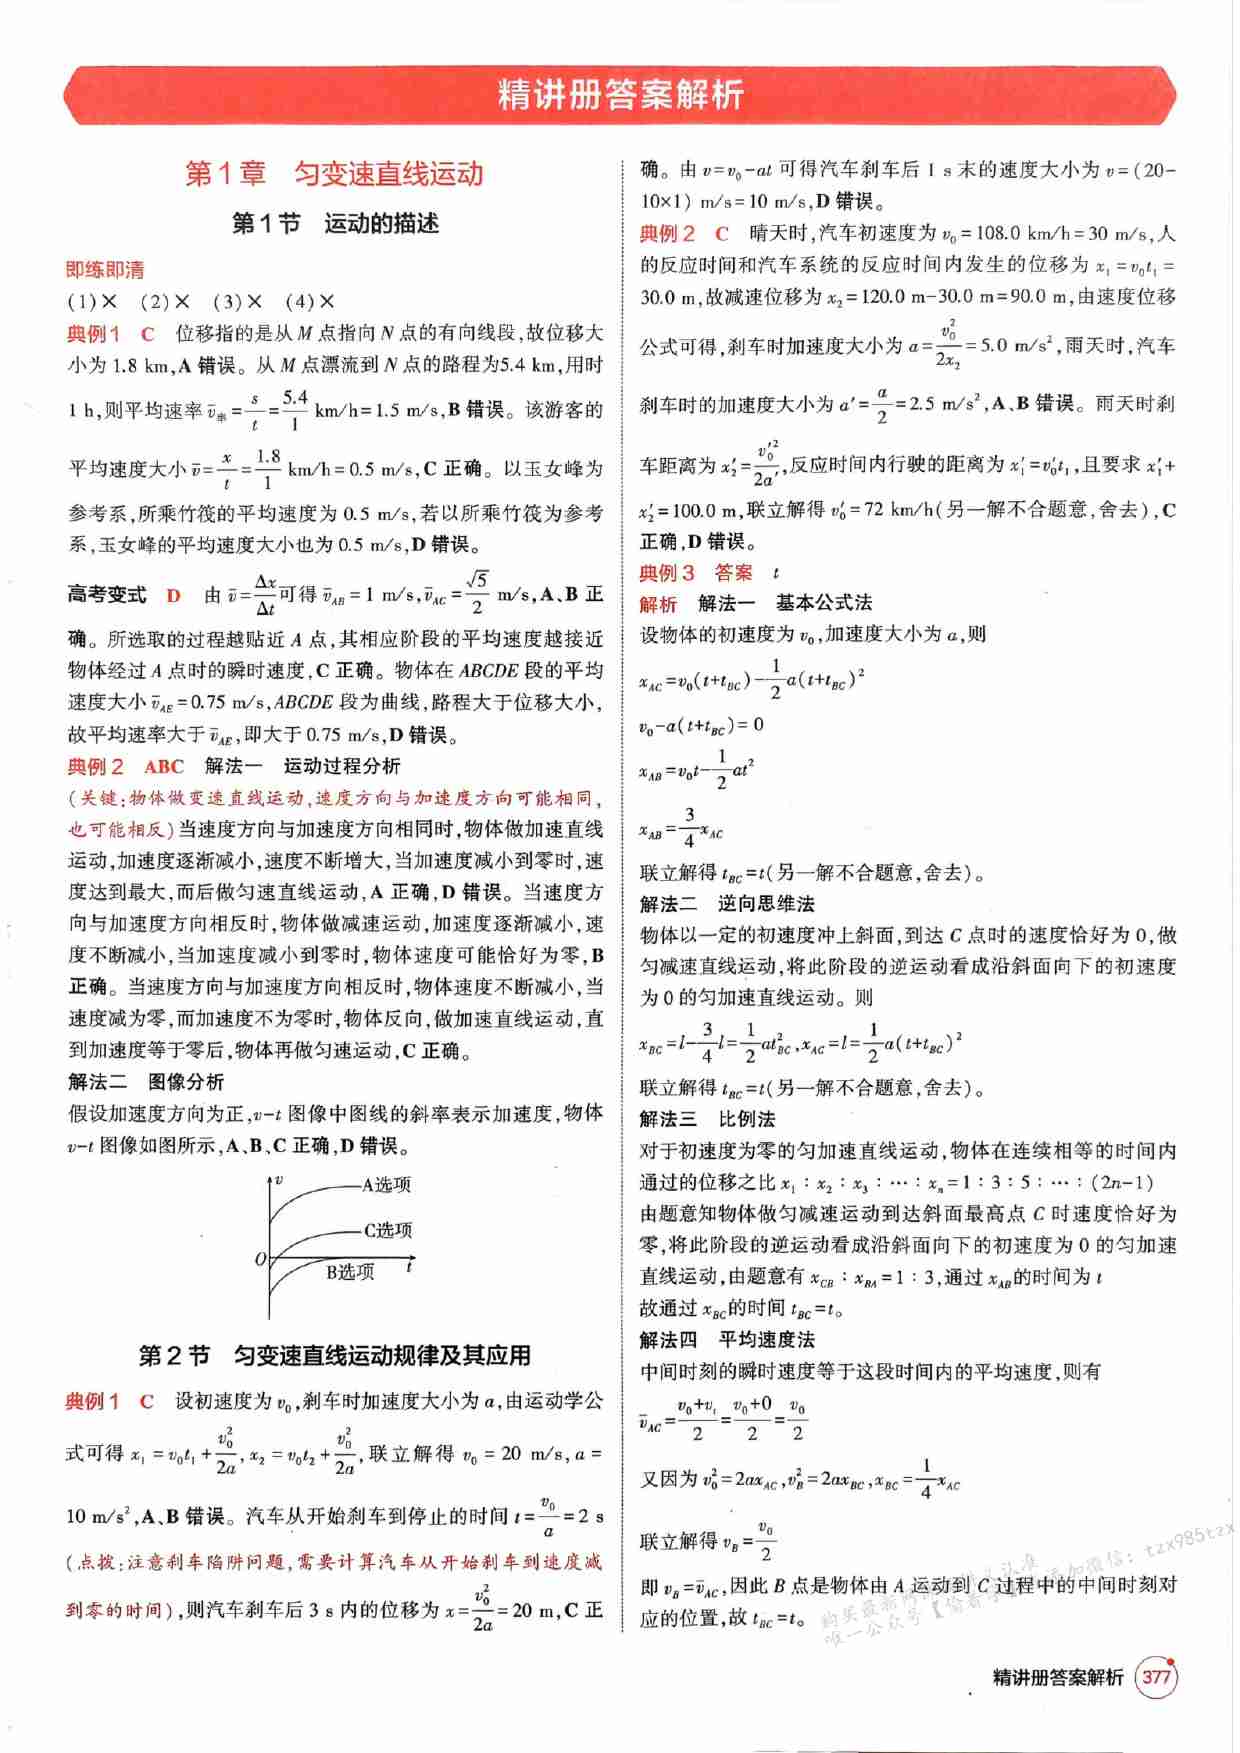 精讲册答案解析
第1章 匀变速直线运动
第1节 运动的描述
即练即清
(1)× (2)× (3)× (4)×
典例1 C 位移指的是从M点指向N点的有向线段,故位移大
小为1.8 km,A错误。从M点漂流到N点的路程为5.4 km,用时
1 h,则平均速率v̄率=s/t=5.4/1 km/h=1.5 m/s,B错误。该游客的
平均速度大小v̄=x/t=1.8/1 km/h=0.5 m/s,C正确。以玉女峰为
参考系,所乘竹筏的平均速度为0.5 m/s,若以所乘竹筏为参考
系,玉女峰的平均速度大小也为0.5 m/s,D错误。
高考变式 D 由v̄=Δx/Δt可得v̄AB=1 m/s,v̄AC=√5/2 m/s,A、B正
确。所选取的过程越贴近A点,其相应阶段的平均速度越接近
物体经过A点时的瞬时速度,C正确。物体在ABCDE段的平均
速度大小v̄AE=0.75 m/s,ABCDE段为曲线,路程大于位移大小,
故平均速率大于v̄AE,即大于0.75 m/s,D错误。
典例2 ABC 解法一 运动过程分析
(关键:物体做变速直线运动,速度方向与加速度方向可能相同,
也可能相反)当速度方向与加速度方向相同时,物体做加速直线
运动,加速度逐渐减小,速度不断增大,当加速度减小到零时,速
度达到最大,而后做匀速直线运动,A正确,D错误。当速度方
向与加速度方向相反时,物体做减速运动,加速度逐渐减小,速
度不断减小,当加速度减小到零时,物体速度可能恰好为零,B
正确。当速度方向与加速度方向相反时,物体速度不断减小,当
速度减为零,而加速度不为零时,物体反向,做加速直线运动,直
到加速度等于零后,物体再做匀速运动,C正确。
解法二 图像分析
假设加速度方向为正,v-t图像中图线的斜率表示加速度,物体
v-t图像如图所示,A、B、C正确,D错误。
v
A选项
C选项
O
B选项 t
第2节 匀变速直线运动规律及其应用
典例1 C 设初速度为v₀,刹车时加速度大小为a,由运动学公
式可得x₁=v₀t₁+v₀²/2a,x₂=v₀t₂+v₀²/2a,联立解得v₀=20 m/s,a=
10 m/s²,A、B错误。汽车从开始刹车到停止的时间t=v₀/a=2 s
(点拨:注意刹车陷阱问题,需要计算汽车从开始刹车到速度减
到零的时间),则汽车刹车后3 s内的位移为x=v₀²/2a=20 m,C正
确。由v=v₀-at可得汽车刹车后1 s末的速度大小为v=(20-
10×1) m/s=10 m/s,D错误。
典例2 C 晴天时,汽车初速度为v₀=108.0 km/h=30 m/s,人
的反应时间和汽车系统的反应时间内发生的位移为x₁=v₀t₁=
30.0 m,故减速位移为x₂=120.0 m-30.0 m=90.0 m,由速度位移
公式可得,刹车时加速度大小为a=v₀²/2x₂=5.0 m/s²,雨天时,汽车
刹车时的加速度大小为a′=a/2=2.5 m/s²,A、B错误。雨天时刹
车距离为x₂′=v₀′²/2a′,反应时间内行驶的距离为x₁′=v₀′t₁,且要求x₁′+
x₂′=100.0 m,联立解得v₀′=72 km/h(另一解不合题意,舍去),C
正确,D错误。
典例3 答案 t
解析 解法一 基本公式法
设物体的初速度为v₀,加速度大小为a,则
xAC=v₀(t+tBC)-1/2a(t+tBC)²
v₀-a(t+tBC)=0
xAB=v₀t-1/2at²
xAB=3/4xAC
联立解得tBC=t(另一解不合题意,舍去)。
解法二 逆向思维法
物体以一定的初速度冲上斜面,到达C点时的速度恰好为0,做
匀减速直线运动,将此阶段的逆运动看成沿斜面向下的初速度
为0的匀加速直线运动。则
xBC=l-3/4l=1/2at²BC,xAC=l=1/2a(t+tBC)²
联立解得tBC=t(另一解不合题意,舍去)。
解法三 比例法
对于初速度为零的匀加速直线运动,物体在连续相等的时间内
通过的位移之比x₁∶x₂∶x₃∶…∶xₙ=1∶3∶5∶…∶(2n-1)
由题意知物体做匀减速运动到达斜面最高点C时速度恰好为
零,将此阶段的逆运动看成沿斜面向下的初速度为0的匀加速
直线运动,由题意有xCB∶xBA=1∶3,通过xAB的时间为t
故通过xBC的时间tBC=t。
解法四 平均速度法
中间时刻的瞬时速度等于这段时间内的平均速度,则有
v̄AC=(v₀+vₜ)/2=(v₀+0)/2=v₀/2
又因为v₀²=2axAC,vB²=2axBC,xBC=1/4xAC
联立解得vB=v₀/2
即vB=v̄AC,因此B点是物体由A运动到C过程中的中间时刻对
应的位置,故tBC=t。
精讲册答案解析 377